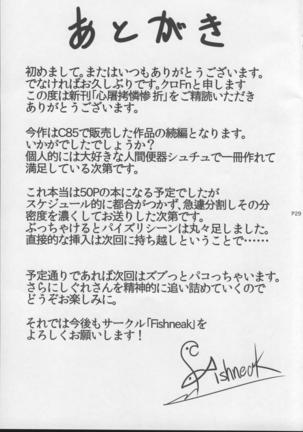 あとがき
初めまして。またはいつもありがとうございます。
でなければお久しぶりです。クロFnと申します
この度は新刊「心屠拷憐惨 折」をご精読いただき
ありがとうございます。
今作はC85で販売した作品の続編となります。
いかがでしたでしょうか？
個人的には大好きな人間便器シュチュで一冊作れて
満足している次第です。
これ本当は50Pの本になる予定でしたが
スケジュール的に都合がつかず、急遽分割しその分
密度を濃くしてお送りした次第です。
ぶっちゃけるとパイズリシーンは丸々足しました。
直接的な挿入は次回に持ち越しということで……
予定通りであれば次回はズブっとパコっちゃいます。
さらにしぐれさんを精神的に追い詰めていくので
どうぞお楽しみに。
それでは今後もサークル「Fishneak」を
よろしくお願いします！
Fishneak
P29